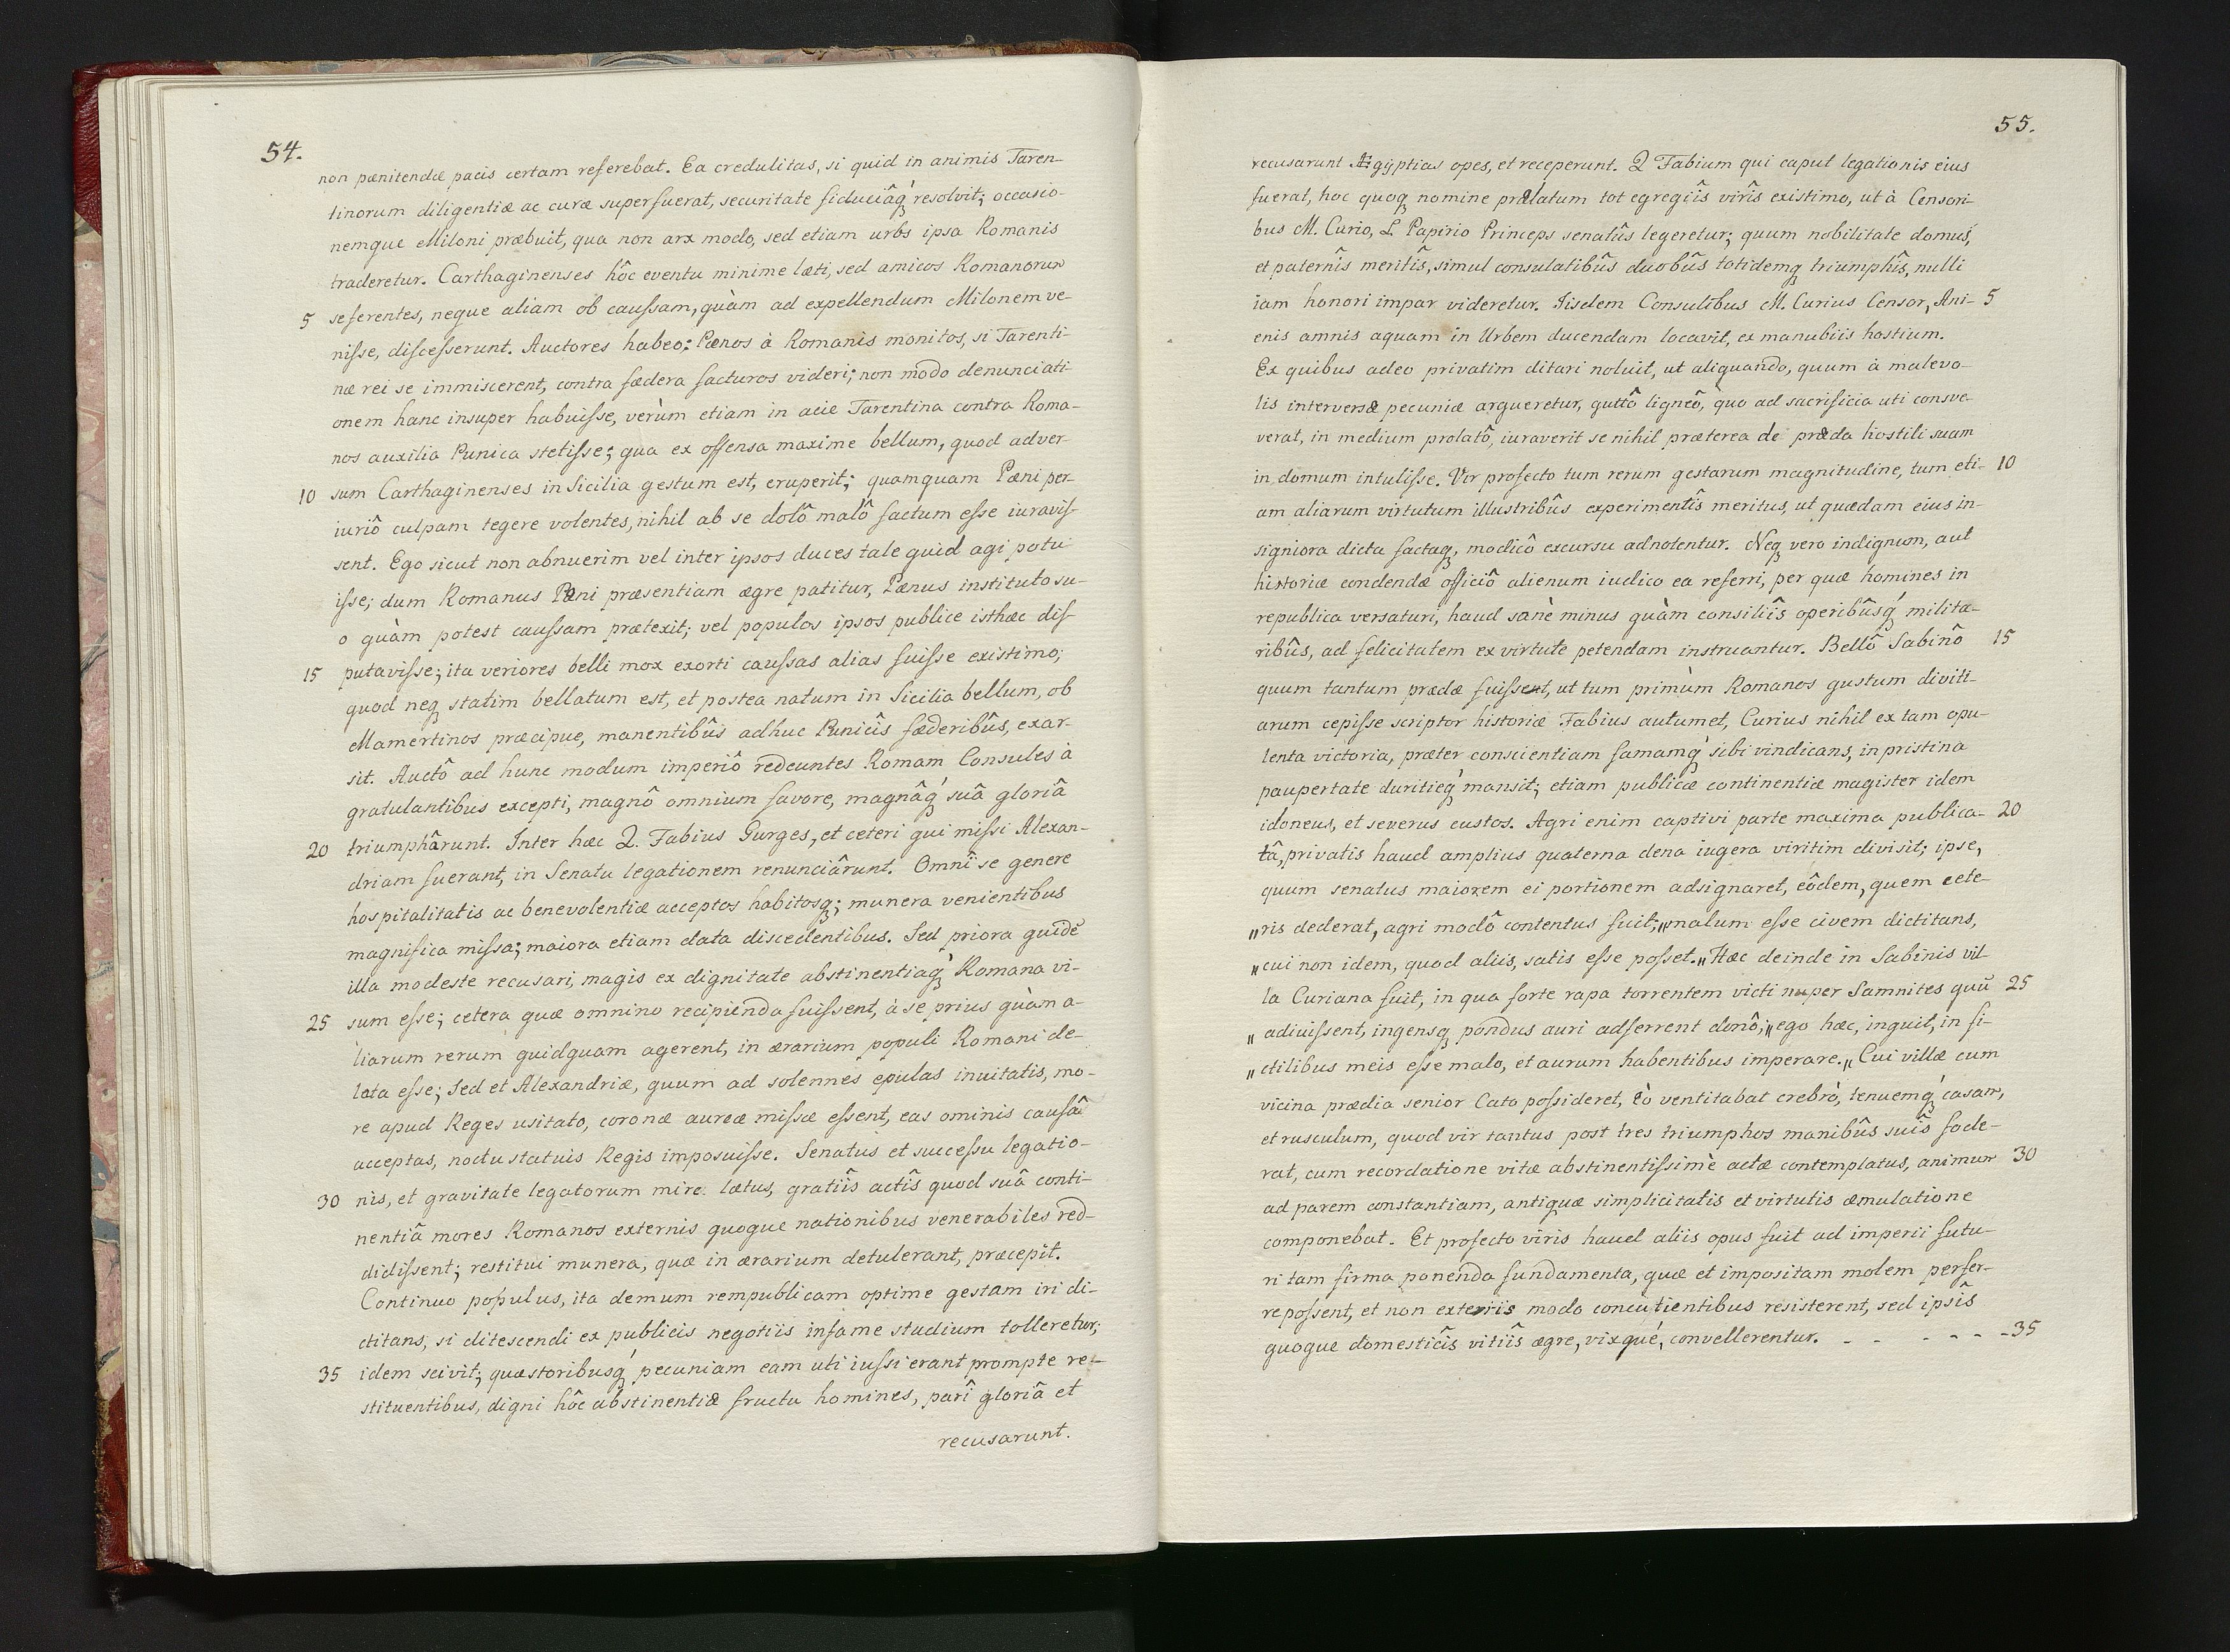 54.
non pænitendæ pacis certam referebat. Ea credulitas, si quid in animis Taren-
tinorum diligentiæ ac curæ superfuerat, securitate fiduciâq́ꝫ resolvit; occasio-
nemque Miloni præbuit, qua non arx modo, sed etiam urbs ipsa Romanis
traderetur. Carthaginenses hôc eventu minime læti, sed amicos Romanorum
5 seferentes, neque aliam ob caussam, quàm ad expellendum Milonem ve-
nisse, discesserunt. Auctores habeo: Pænos à Romanis monitos, si Tarenti-
næ rei se immiscerent, contra fædera facturos videri; non modo denunciati-
onem hanc insuper habuisse, verùm etiam in acie Tarentina contra Roma-
nos auxilia Punica stetisse; qua ex offensa maxime bellum, quod adver-
10 sum Carthaginenses in Sicilia gestum est, eruperit; quamquam Pæni per-
iuriô culpam tegere volentes, nihil ab se dolô malô factum esse iuravis-
sent. Ego sicut non abnuerim vel inter ipsos duces tale quid agi potu
isse; dum Romanus Pæni præsentiam ægre patitur, Pænus instituto su-
o quàm potest caussam prætexit; vel populos ipsos publice isthæc dis-
15 putavisse; ita veriores belli mox exorti caussas alias fuisse existimo;
quod neqꝫ statim bellatum est, et postea natum in Sicilia bellum, ob
Mamertinos præcipue, manentibûs adhuc Punicîs fæderibûs, exar-
sit. Auctô ad hunc modum imperiô redeuntes Romam Consules à
gratulantibus excepti, magnô omnium favore, magnâq́ꝫ suâ gloriâ
20 triumphârunt. Inter hæc Q. Fabius Gurges, et ceteri qui missi Alexan-
driam fuerant, in Senatu legationem renunciârunt. Omnî se genere
hospitalitatis ac benevolentiæ acceptos habitosqꝫ; munera venientibus
magnifica missa; maiora etiam data discedentibus. Sed priora quidē
illa modeste recusari, magis ex dignitate abstinentiaq́ꝫ Romana vi-
25 sum esse; cetera quæ omnino recipienda fuissent, à se prius quàm a-
liarum rerum quidquam agerent, in ærarium populi Romani de-
lata esse; Sed et Alexandriæ, quum ad solennes epulas inuitatis, mo-
re apud Reges usitato, coronæ aureæ missæ essent, eas ominis causâ
acceptas, noctu statuis Regis imposuisse. Senatus et successu legatio-
30 nis, et gravitate legatorum mire lætus, gratiîs actîs quod suâ conti-
nentiâ mores Romanos externis quoque nationibus venerabiles red-
didissent; restitui munera, quæ in ærarium detulerant, præcepit.
Continuo populus, ita demum rempublicam optime gestam iri di-
ctitans, si ditescendi ex publicis negotiis infame studium tolleretur;
35 idem scivit; quæstoribusq́ꝫ pecuniam eam uti iussi erant prompte re-
stituentibus, digni hôc abstinentiæ fructu homines, parî gloriâ et
recusarunt.
55.
recusarunt Ægÿptias opes, et receperunt. Q Fabium qui caput legationis eius
fuerat, hoc quoqꝫ nomine prælatum tot egregiîs virîs existimo, ut à Censori-
bus M. Curio, L Papirio Princeps senatûs legeretur; quum nobilitate domus,
et paternîs meritîs, simul consulatibûs duobûs totidemqꝫ triumphîs, nulli
iam honori impar videretur. Iisdem Consulibus M. Curius Censor, Ani- 5
enis amnis aquam in Urbem ducendam locavit, ex manubiis hostium.
Ex quibus adeo privatim ditari noluit, ut aliquando, quum à malevo-
lis interversæ pecuniæ argueretur, guttô ligneô, quo ad sacrificia uti consve-
verat, in medium prolatô, iuraverit se nihil præterea de præda hostili suam
in domum intulisse. Vir profecto tum rerum gestarum magnitudine, tum eti- 10
am aliarum virtutum illustribûs experimentîs meritus, ut quædam eius in-
signiora dicta factaqꝫ, modicô excursu adnotentur. Neqꝫ vero indignum, aut
historiæ condendæ officiô alienum iudico ea referri, per quæ homines in
republica versaturi, haud sanè minus quàm consiliîs operibûsq́ꝫ milita-
ribûs, ad felicitatem ex virtute petendam instruantur. Bellô Sabinô 15
quum tantum prædæ fuissent, ut tum primùm Romanos gustum diviti-
arum cepisse scriptor historiæ Fabius autumet, Curius nihil ex tam opu-
lenta victoria, præter conscientiam famamq́ꝫ sibi vindicans, in pristina
paupertate duritieq́ꝫ mansit; etiam publicæ continentiæ magister idem
idoneus, et severus custos. Agri enim captivi parte maxima publica- 20
tâ, privatis haud amplius quaterna dena iugera viritim divisit; ipse,
quum senatus maiorem ei portionem adsignaret, eôdem, quem cete-
„ris dederat, agri modô contentus fuit; „malum esse civem dictitans,
„cui non idem, quod aliis, satis esse posset.„ Hæc deinde in Sabinis vil-
la Curiana fuit, in qua forte rapa torrentem victi nuper Samnites quū 25
„ adiuissent, ingensqꝫ pondus auri adferrent donô; „ego hæc, inquit, in fi-
„ctilibus meis esse malo, et aurum habentibus imperare.„ Cui villæ cum
vicina prædia senior Cato possideret, eò ventitabat crebrò, tenuemq́ꝫ casam,
et rusculum, quod vir tantus post tres triumphos manibûs suîs fode-
rat, cum recordatione vitæ abstinentissimè actæ contemplatus, animum 30
ad parem constantiam, antiquæ simplicitatis et virtutis æmulatione
componebat. Et profecto viris haud aliis opus fuit ad imperii futu-
ri tam firma ponenda fundamenta, quæ et impositam molem perfer-
re possent, et non exteriis modo concutientibus resisterent, sed ipsîs
quoque domesticîs vitiîs ægre, vixqué, convellerentur. - - - - - -35